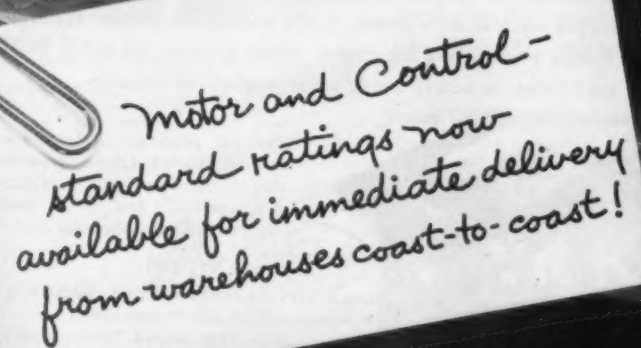 Motor and Control-
standard ratings now
available for immediate delivery
from warehouses coast-to-coast!